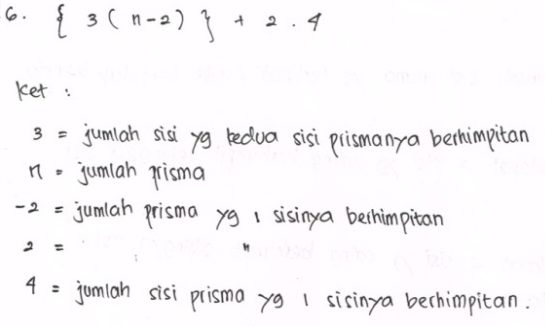 6. { 3 ( n - 2 ) } + 2 . 4
ket :
3 = jumlah sisi yg kedua sisi prismanya berhimpitan
n = jumlah prisma
-2 = jumlah prisma yg 1 sisinya berhimpitan
2 = "
4 = jumlah sisi prisma yg 1 sisinya berhimpitan.